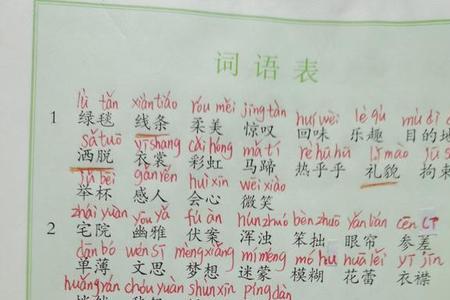 词语表
lǜ tǎn xiàn tiáo róu měi jīng tàn huí wèi lè qù mù dì
1 绿毯 线条 柔美 惊叹 回味 乐趣 目的地
sǎ tuō yī shang cǎi hóng mǎ tí rè hū hū lǐ mào jū
洒脱 衣裳 彩虹 马蹄 热乎乎 礼貌 拘束
jǔ bēi gǎn rén huì xīn wēi xiào
举杯 感人 会心 微笑
zhái yuàn yōu yǎ fú àn hún zhuó bèn zhuō yǎn lián cēn
2 宅院 幽雅 伏案 浑浊 笨拙 眼帘 参差
dān bó wén sī mèng xiǎng mí méng mó hu huā lěi yī jīn
单薄 文思 梦想 迷蒙 模糊 花蕾 衣襟
huāng yuán chóu yuàn shùn xīn píng dàn